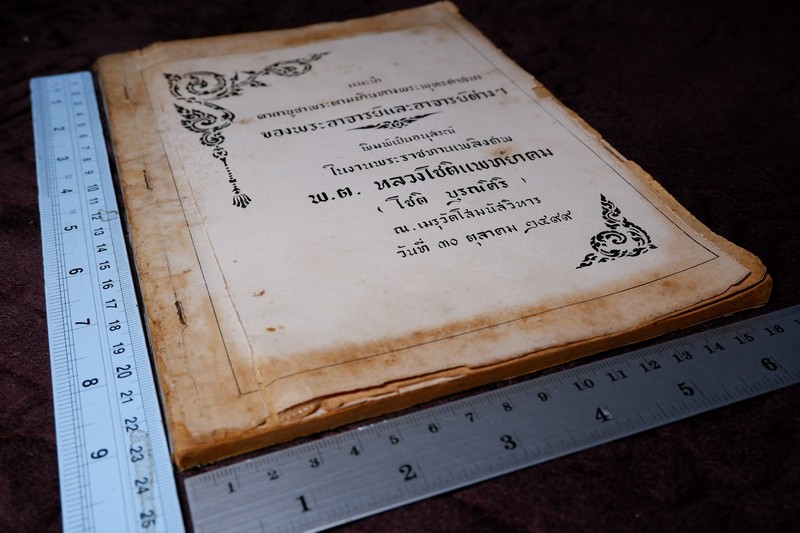 แนะนำ
คาถาบูชาพระตามตำนานพระพุทธศาสนา
ของพระอาจารย์และอาจารย์ต่างๆ
พิมพ์เป็นอนุสรณ์
ในงานพระราชทานเพลิงศพ
พ.ต. หลวงโชติแพทยาคม
( โชติ บูรณศิริ )
ณ.เมรุวัดโสมนัสวิหาร
วันที่ ๓๐ ตุลาคม ๒๔๙๙
1 2 3 4 5 6 7 8 9 10 11 12 13 14 15 16
1 2 3 4 5 6
1 2 3 4 5 6 7 8 9
12 13 14 15 16 17 18 19 20 21 22 23 24 25